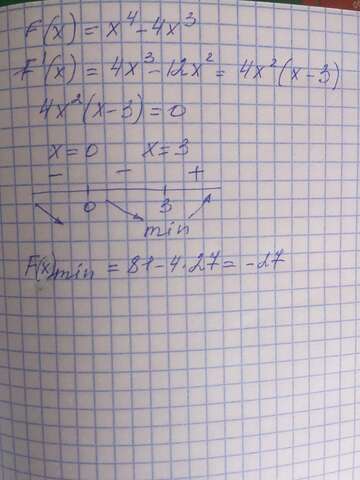 F(x) = x⁴ - 4x³
F'(x) = 4x³ - 12x² = 4x²(x-3)
4x²(x-3) = 0
x = 0 x = 3
- - +
0 3
min
F(x)min = 81 - 4·27 = -27